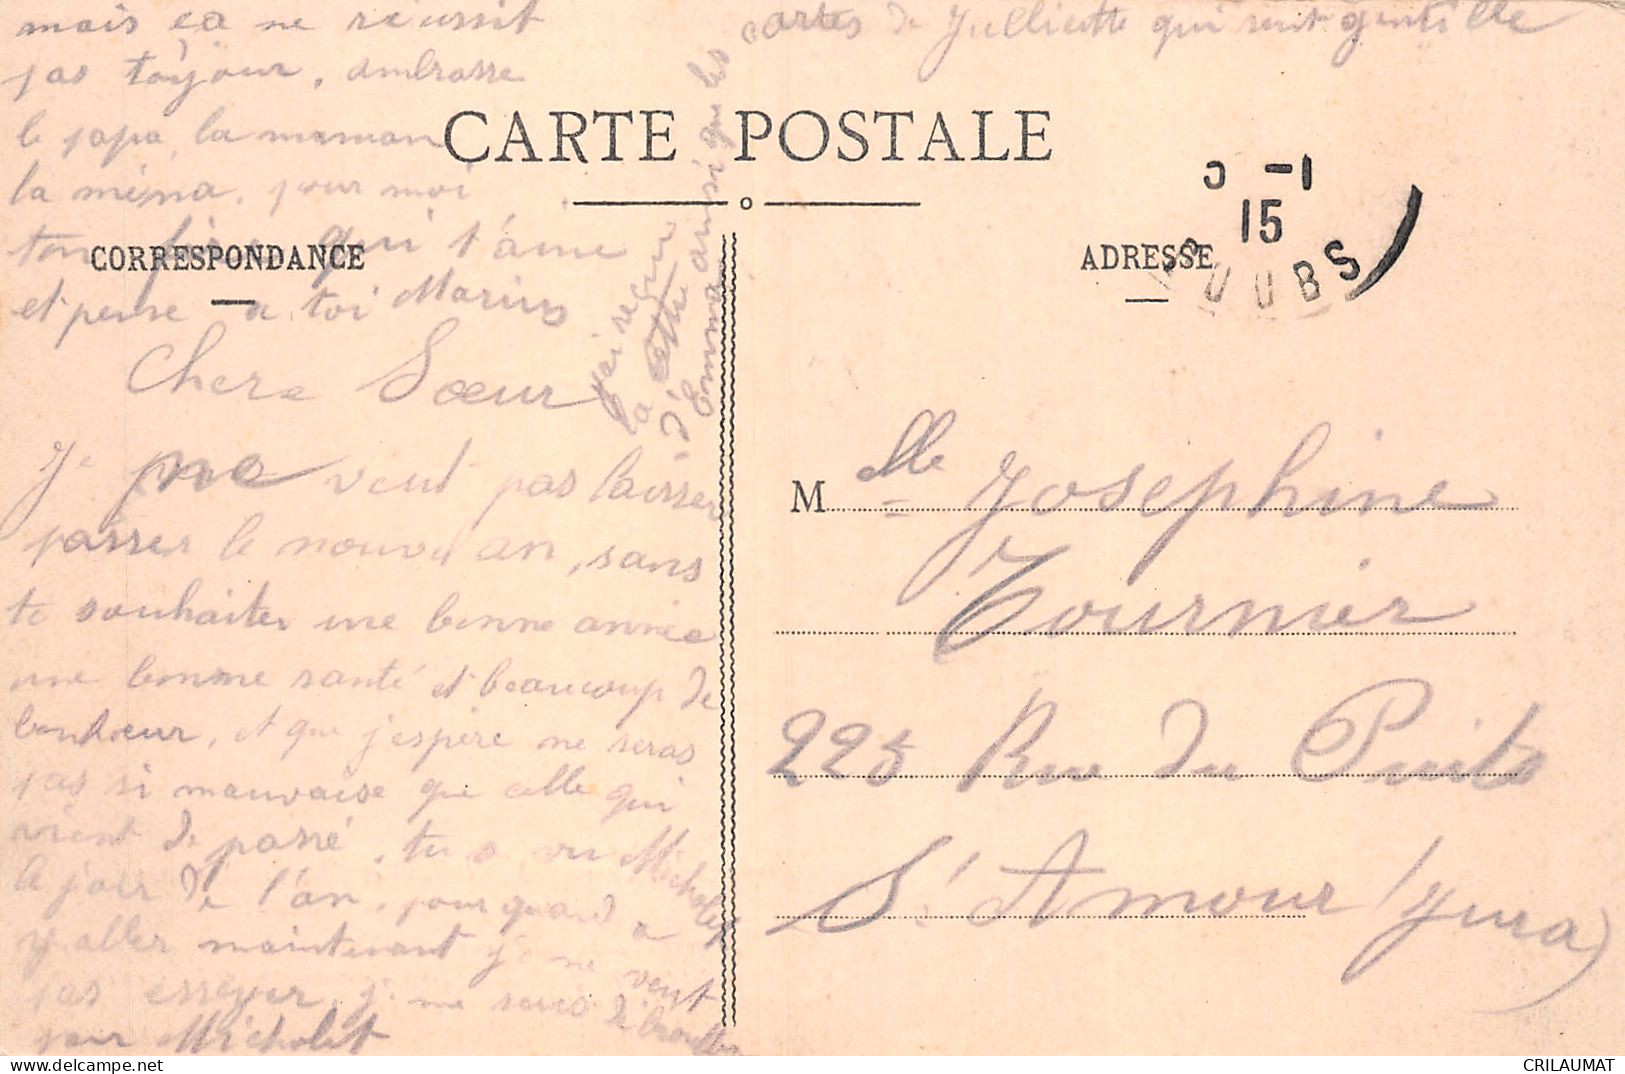 CARTE POSTALE
CORRESPONDANCE
ADRESSE
5 -1
15
DOUBS
Chere Sœur
Je ne veut pas laisser
passer le nouvel an, sans
te souhaiter une bonne année
une bonne santé et beaucoup de
bonheur, et que j'espère ne seras
pas si mauvaise que celle qui
vient de passé, tu a vu Micholet
le jour de l'an, pour quand a
y aller maintenant je ne veut
pas esseyer, je me suis débrouller
pour Micholet
mais ça ne réussit
pas toujour, ambrasse
le papa, la maman
la ména, pour moi
ton qui t'aime
et pense a toi Marius
j'ai reçu
la lettre
d'Emma ainsi que les
cartes de Julliette qui sont gentille
Mlle Josephine
Tournier
225 Rue du Puits
St Amour (Jura)
CRILAUMAT